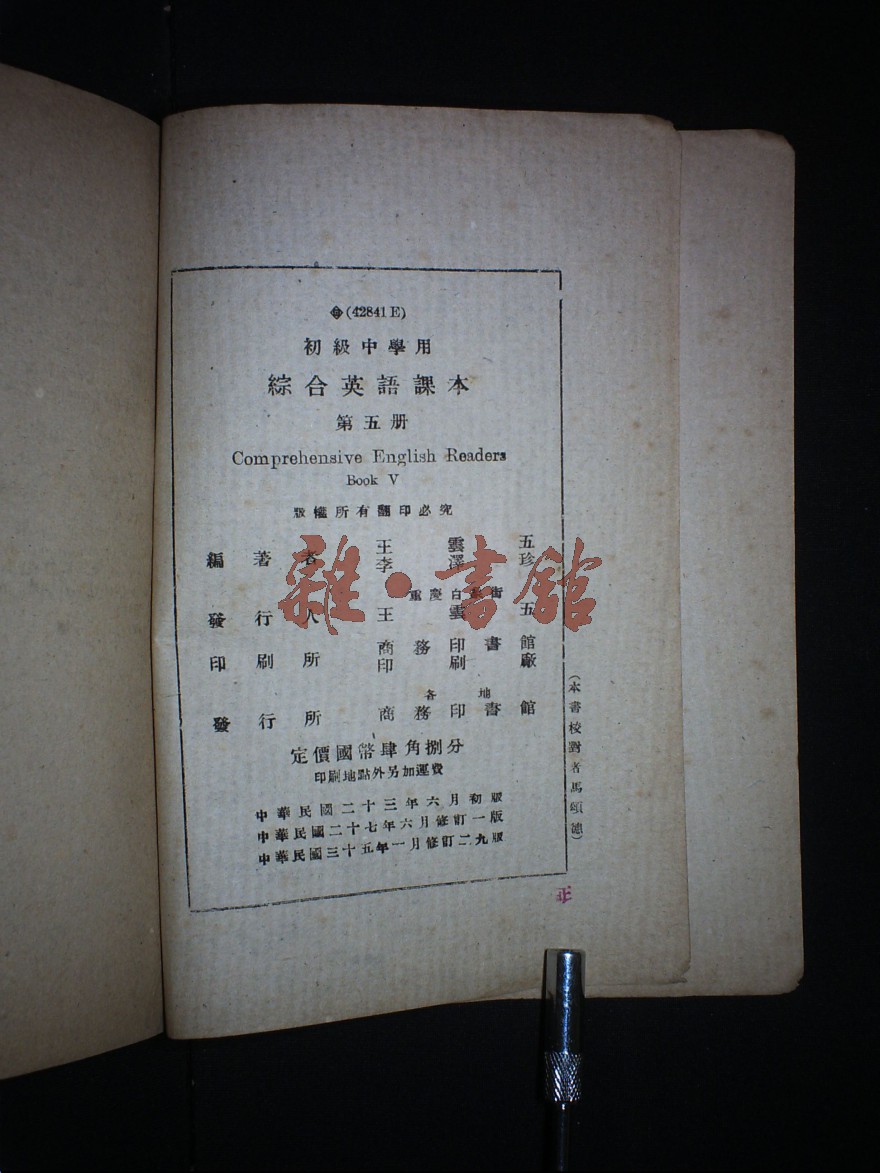 (42841 E)
初級中學用
綜合英語課本
第五册
Comprehensive English Readers
Book V
版權所有翻印必究
編著者 王雲五
李澤珍
重慶白象街
發行人 王雲五
印刷所 商務印書館
印刷廠
各地
發行所 商務印書館
定價國幣肆角捌分
印刷地點外另加運費
中華民國二十三年六月初版
中華民國二十七年六月修訂一版
中華民國三十五年一月修訂二九版
(本書校對者馬頌德)
正
雜·書館